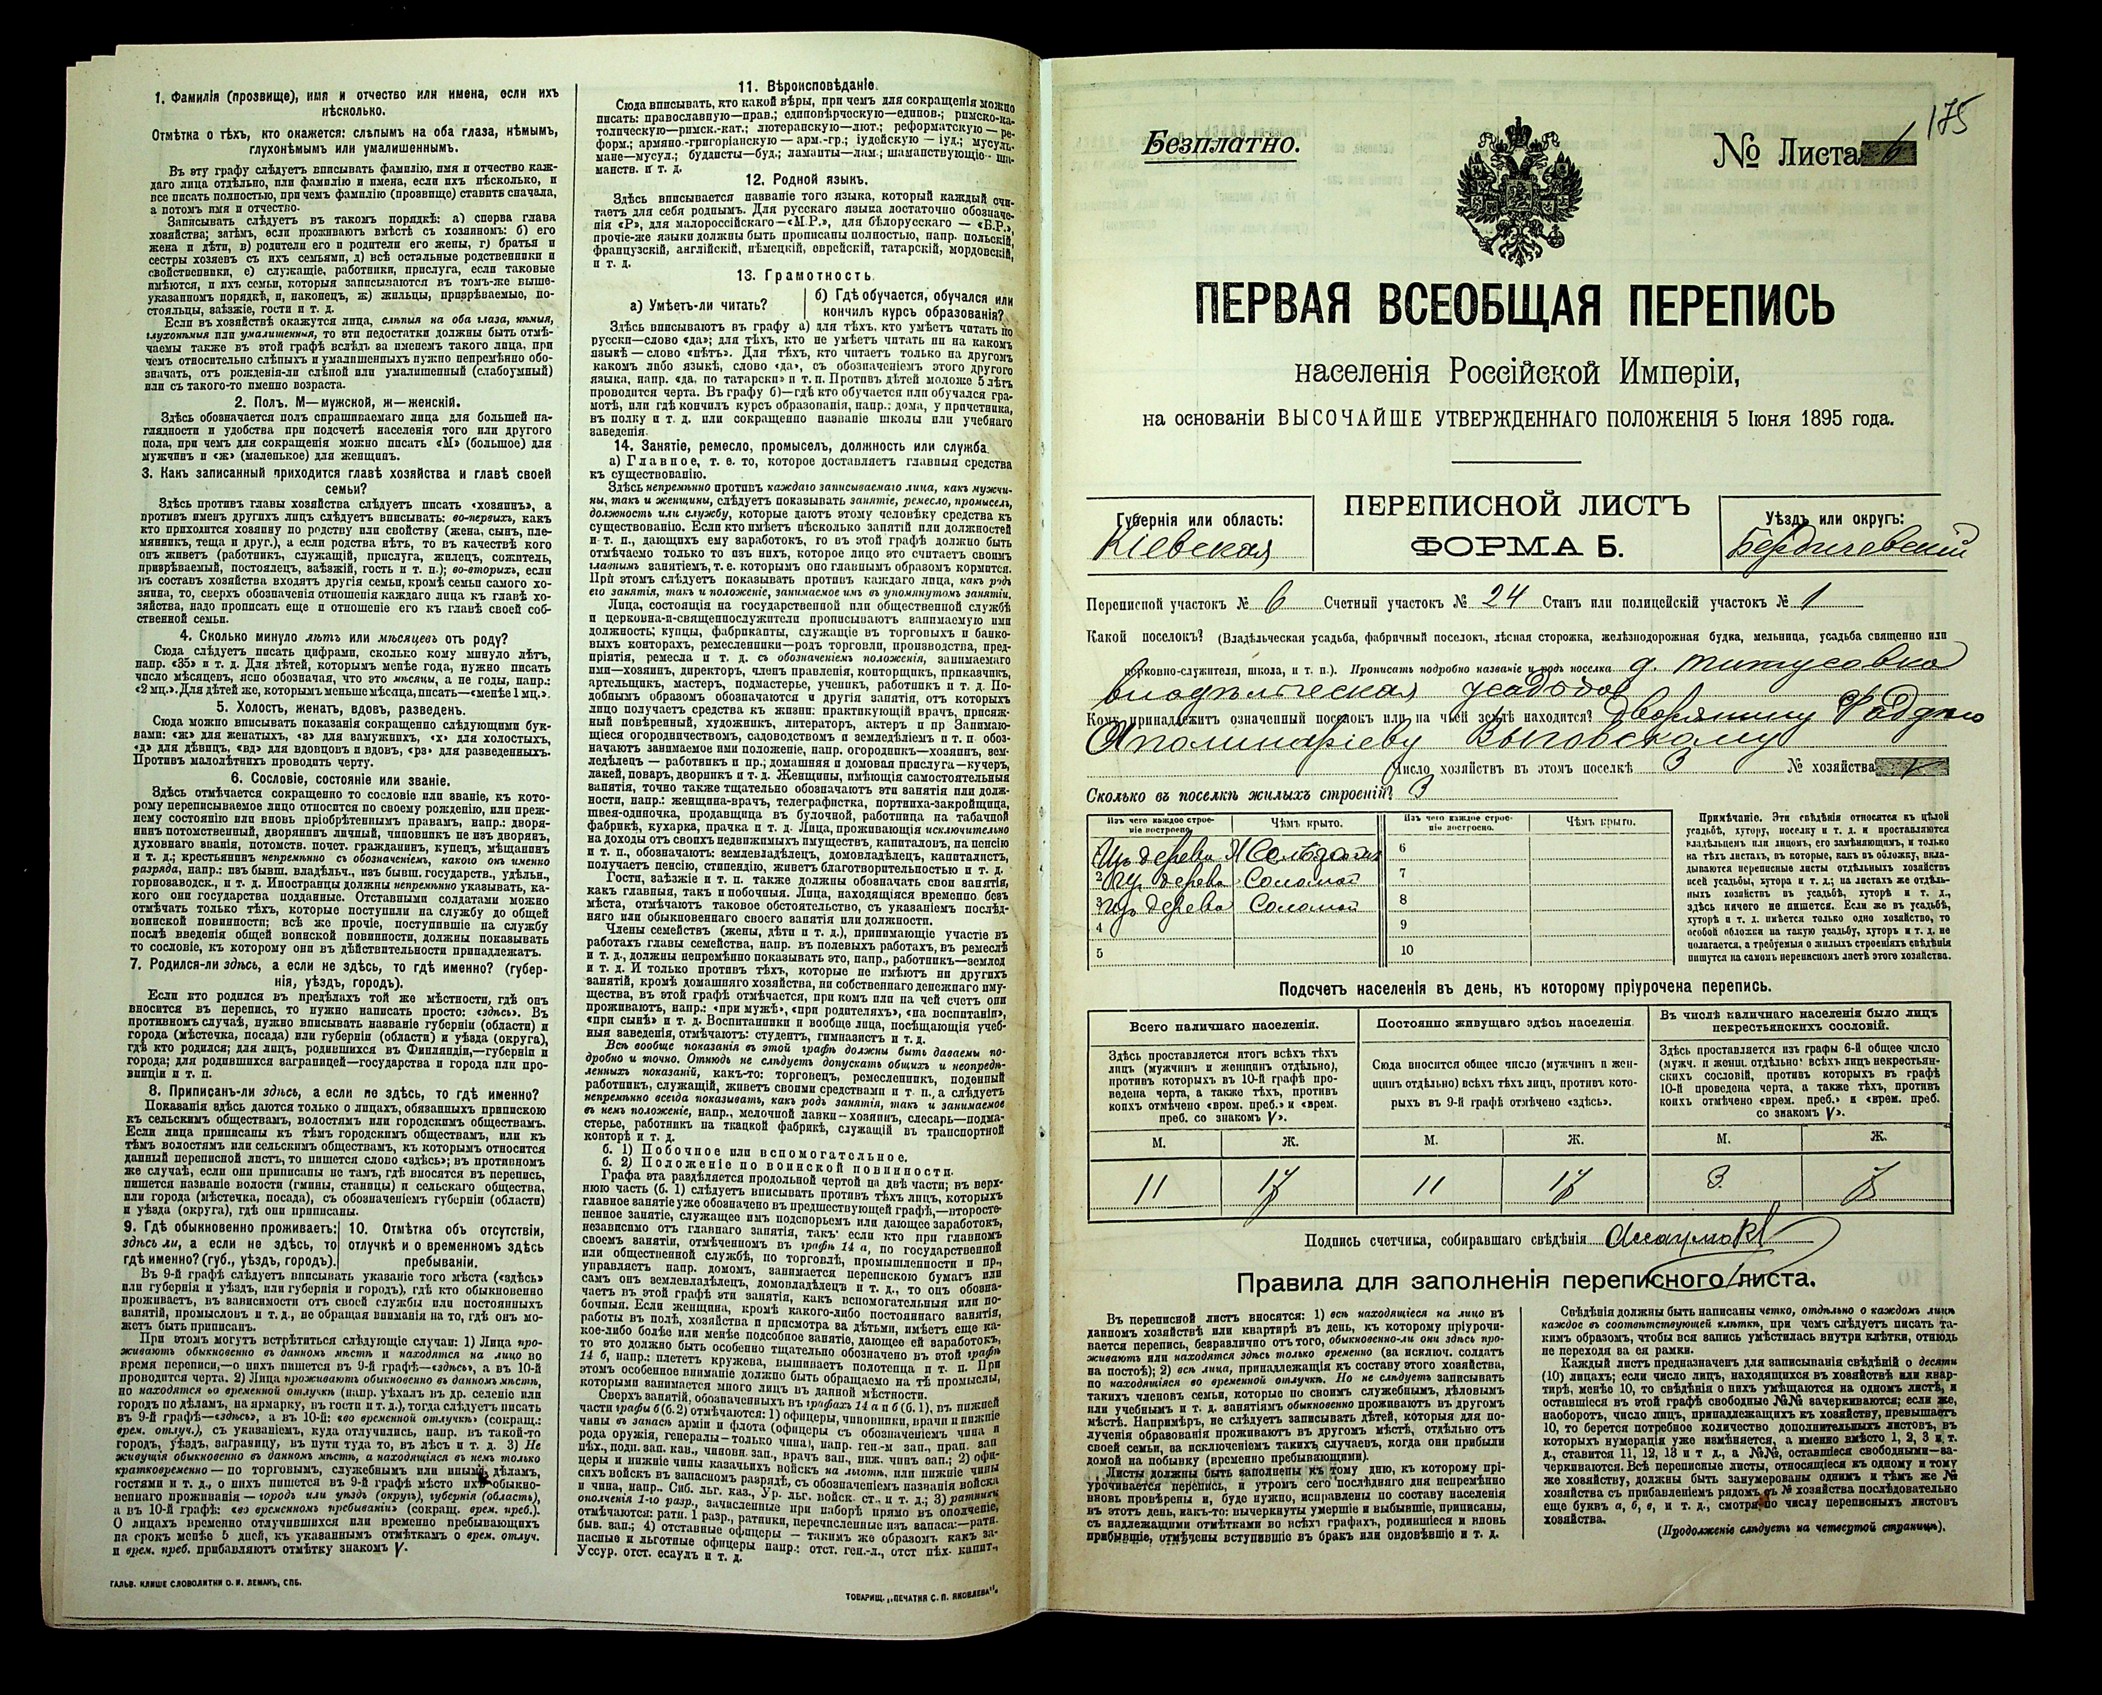 1. Фамилія (прозвище), имя и отчество или имена, если ихъ
нѣсколько.
Отмѣтка о тѣхъ, кто окажется: слѣпымъ на оба глаза, нѣмымъ,
глухонѣмымъ или умалишеннымъ.
Въ эту графу слѣдуетъ вписывать фамилію, имя и отчество каж-
даго лица отдѣльно, или фамилію и имена, если ихъ нѣсколько, и
все писать полностью, при чемъ фамилію (прозвище) ставить сначала,
а потомъ имя и отчество.
Записывать слѣдуетъ въ такомъ порядкѣ: а) сперва глава
хозяйства; затѣмъ, если проживаютъ вмѣстѣ съ хозяиномъ: б) его
жена и дѣти, в) родители его и родители его жены, г) братья и
сестры хозяевъ съ ихъ семьями, д) всѣ остальные родственники и
свойственники, е) служащіе, работники, прислуга, если таковые
имѣются, и ихъ семьи, которыя записываются въ томъ-же выше-
указанномъ порядкѣ, и, наконецъ, ж) жильцы, призрѣваемые, по-
стояльцы, заѣзжіе, гости и т. д.
Если въ хозяйствѣ окажутся лица, слѣпыя на оба глаза, нѣмыя,
глухонѣмыя или умалишенныя, то эти недостатки должны быть отмѣ-
чаемы также въ этой графѣ вслѣдъ за именемъ такого лица, при
чемъ относительно слѣпыхъ и умалишенныхъ нужно непремѣнно обо-
значать, отъ рожденія-ли слѣпой или умалишенный (слабоумный)
или съ такого-то именно возраста.
2. Полъ. М—мужской, ж—женскій.
Здѣсь обозначается полъ спрашиваемаго лица для большей на-
глядности и удобства при подсчетѣ населенія того или другого
пола, при чемъ для сокращенія можно писать «М» (большое) для
мужчинъ и «ж» (маленькое) для женщинъ.
3. Какъ записанный приходится главѣ хозяйства и главѣ своей
семьи?
Здѣсь противъ главы хозяйства слѣдуетъ писать «хозяинъ», а
противъ именъ другихъ лицъ слѣдуетъ вписывать: во-первыхъ, какъ
кто приходится хозяину по родству или свойству (жена, сынъ, пле-
мянникъ, теща и друг.), а если родства нѣтъ, то въ качествѣ кого
онъ живетъ (работникъ, служащій, прислуга, жилецъ, сожитель,
призрѣваемый, постоялецъ, заѣзжій, гость и т. п.); во-вторыхъ, если
въ составъ хозяйства входятъ другія семьи, кромѣ семьи самого хо-
зяина, то, сверхъ обозначенія отношенія каждаго лица къ главѣ хо-
зяйства, надо прописать еще и отношеніе его къ главѣ своей соб-
ственной семьи.
4. Сколько минуло лѣтъ или мѣсяцевъ отъ роду?
Сюда слѣдуетъ писать цифрами, сколько кому минуло лѣтъ,
напр. «35» и т. д. Для дѣтей, которымъ менѣе года, нужно писать
число мѣсяцевъ, ясно обозначая, что это мѣсяцы, а не годы, напр.:
«2 мц.». Для дѣтей же, которымъ меньше мѣсяца, писать—«менѣе 1 мц.».
5. Холостъ, женатъ, вдовъ, разведенъ.
Сюда можно вписывать показанія сокращенно слѣдующими бук-
вами: «ж» для женатыхъ, «з» для замужнихъ, «х» для холостыхъ,
«д» для дѣвицъ, «вд» для вдовцовъ и вдовъ, «рз» для разведенныхъ.
Противъ малолѣтнихъ проводить черту.
6. Сословіе, состояніе или званіе.
Здѣсь отмѣчается сокращенно то сословіе или званіе, къ кото-
рому переписываемое лицо относится по своему рожденію, или преж-
нему состоянію или вновь пріобрѣтеннымъ правамъ, напр.: дворя-
нинъ потомственный, дворянинъ личный, чиновникъ не изъ дворянъ,
духовнаго званія, потомств. почет. гражданинъ, купецъ, мѣщанинъ
и т. д.; крестьянинъ непремѣнно съ обозначеніемъ, какого онъ именно
разряда, напр.: изъ бывш. владѣльч., изъ бывш. государств., удѣльн.,
горнозаводск., и т. д. Иностранцы должны непремѣнно указывать, ка-
кого они государства подданные. Отставными солдатами можно
отмѣчать только тѣхъ, которые поступили на службу до общей
воинской повинности; всѣ же прочіе, поступившіе на службу
послѣ введенія общей воинской повинности, должны показывать
то сословіе, къ которому они въ дѣйствительности принадлежатъ.
7. Родился-ли здѣсь, а если не здѣсь, то гдѣ именно? (губер-
нія, уѣздъ, городъ).
Если кто родился въ предѣлахъ той же мѣстности, гдѣ онъ
вносится въ перепись, то нужно написать просто: «здѣсь». Въ
противномъ случаѣ, нужно вписывать названіе губерніи (области) и
города (мѣстечка, посада) или губерніи (области) и уѣзда (округа),
гдѣ кто родился; для лицъ, родившихся въ Финляндіи,—губерніи и
города; для родившихся заграницей—государства и города или про-
винціи и т. п.
8. Приписанъ-ли здѣсь, а если не здѣсь, то гдѣ именно?
Показанія здѣсь даются только о лицахъ, обязанныхъ припискою
къ сельскимъ обществамъ, волостямъ или городскимъ обществамъ.
Если лица приписаны къ тѣмъ городскимъ обществамъ, или къ
тѣмъ волостямъ или сельскимъ обществамъ, къ которымъ относится
данный переписной листъ, то пишется слово «здѣсь»; въ противномъ
же случаѣ, если они приписаны не тамъ, гдѣ вносятся въ перепись,
пишется названіе волости (гмины, станицы) и сельскаго общества,
или города (мѣстечка, посада), съ обозначеніемъ губерніи (области)
и уѣзда (округа), гдѣ они приписаны.
9. Гдѣ обыкновенно проживаетъ:
здѣсь ли, а если не здѣсь, то
гдѣ именно? (губ., уѣздъ, городъ).
10. Отмѣтка объ отсутствіи,
отлучкѣ и о временномъ здѣсь
пребываніи.
Въ 9-й графѣ слѣдуетъ вписывать указаніе того мѣста («здѣсь»
или губернія и уѣздъ, или губернія и городъ), гдѣ кто обыкновенно
проживаетъ, въ зависимости отъ своей службы или постоянныхъ
занятій, промысловъ и т. д., не обращая вниманія на то, гдѣ онъ мо-
жетъ быть приписанъ.
При этомъ могутъ встрѣтиться слѣдующіе случаи: 1) Лица про-
живаютъ обыкновенно въ данномъ мѣстѣ и находятся на лицо во
время переписи,—о нихъ пишется въ 9-й графѣ—«здѣсь», а въ 10-й
проводится черта. 2) Лица проживаютъ обыкновенно въ данномъ мѣстѣ,
но находятся во временной отлучкѣ (напр. уѣхалъ въ др. селеніе или
городъ по дѣламъ, на ярмарку, въ гости и т. д.), тогда слѣдуетъ писать
въ 9-й графѣ—«здѣсь», а въ 10-й: «во временной отлучкѣ» (сокращ.:
врем. отлуч.), съ указаніемъ, куда отлучились, напр. въ такой-то
городъ, уѣздъ, заграницу, въ пути туда то, въ лѣсъ и т. д. 3) Не
живущія обыкновенно въ данномъ мѣстѣ, а находящіяся въ немъ только
кратковременно — по торговымъ, служебнымъ или инымъ дѣламъ,
гостями и т. д., о нихъ пишется въ 9-й графѣ мѣсто ихъ обыкно-
веннаго проживанія — городъ или уѣздъ (округъ), губернія (область),
а въ 10-й графѣ: «во временномъ пребываніи» (сокращ. врем. преб.).
О лицахъ временно отлучившихся или временно пребывающихъ
на срокъ менѣе 5 дней, къ указаннымъ отмѣткамъ о врем. отлуч.
и врем. преб. прибавляютъ отмѣтку знакомъ V.
ГАЛЬВ. КЛИШЕ СЛОВОЛИТНИ О. И. ЛЕМАНЪ, СПБ.
11. Вѣроисповѣданіе.
Сюда вписывать, кто какой вѣры, при чемъ для сокращенія можно
писать: православную—прав.; единовѣрческую—единов.; римско-ка-
толическую—римск.-кат.; лютеранскую—лют.; реформатскую — ре-
форм.; армяно-григоріанскую — арм.-гр.; іудейскую — іуд.; мусуль-
мане—мусул.; буддисты—буд.; ламаиты—лам.; шаманствующіе—ша-
манств. и т. д.
12. Родной языкъ.
Здѣсь вписывается названіе того языка, который каждый счи-
таетъ для себя роднымъ. Для русскаго языка достаточно обозначе-
нія «Р», для малороссійскаго—«М.Р.», для бѣлорусскаго — «Б.Р.»,
прочіе-же языки должны быть прописаны полностью, напр. польскій,
французскій, англійскій, нѣмецкій, еврейскій, татарскій, мордовскій,
и т. д.
13. Грамотность.
а) Умѣетъ-ли читать?
б) Гдѣ обучается, обучался или
кончилъ курсъ образованія?
Здѣсь вписываютъ въ графу а) для тѣхъ, кто умѣетъ читать по
русски—слово «да»; для тѣхъ, кто не умѣетъ читать ни на какомъ
языкѣ — слово «нѣтъ». Для тѣхъ, кто читаетъ только на другомъ
какомъ либо языкѣ, слово «да», съ обозначеніемъ этого другого
языка, напр. «да, по татарски» и т. п. Противъ дѣтей моложе 5 лѣтъ
проводится черта. Въ графу б)—гдѣ кто обучается или обучался гра-
мотѣ, или гдѣ кончилъ курсъ образованія, напр.: дома, у причетника,
въ полку и т. д. или сокращенно названіе школы или учебнаго
заведенія.
14. Занятіе, ремесло, промыселъ, должность или служба.
а) Главное, т. е. то, которое доставляетъ главныя средства
къ существованію.
Здѣсь непремѣнно противъ каждаго записываемаго лица, какъ мужчи-
ны, такъ и женщины, слѣдуетъ показывать занятіе, ремесло, промыселъ,
должность или службу, которые даютъ этому человѣку средства къ
существованію. Если кто имѣетъ нѣсколько занятій или должностей
и т. п., дающихъ ему заработокъ, то въ этой графѣ должно быть
отмѣчаемо только то изъ нихъ, которое лицо это считаетъ своимъ
главнымъ занятіемъ, т. е. которымъ оно главнымъ образомъ кормится.
При этомъ слѣдуетъ показывать противъ каждаго лица, какъ родъ
его занятія, такъ и положеніе, занимаемое имъ въ упомянутомъ занятіи.
Лица, состоящія на государственной или общественной службѣ
и церковно-и-священнослужители прописываютъ занимаемую ими
должность; купцы, фабриканты, служащіе въ торговыхъ и банко-
выхъ конторахъ, ремесленники—родъ торговли, производства, пред-
пріятія, ремесла и т. д. съ обозначеніемъ положенія, занимаемаго
ими—хозяинъ, директоръ, членъ правленія, конторщикъ, приказчикъ,
артельщикъ, мастеръ, подмастерье, ученикъ, работникъ и т. д. По-
добнымъ образомъ обозначаются и другія занятія, отъ которыхъ
лицо получаетъ средства къ жизни: практикующій врачъ, присяж-
ный повѣренный, художникъ, литераторъ, актеръ и пр. Занимаю-
щіеся огородничествомъ, садоводствомъ и земледѣліемъ и т. п. обоз-
начаютъ занимаемое ими положеніе, напр. огородникъ—хозяинъ, зем-
ледѣлецъ — работникъ и пр.; домашняя и домовая прислуга—кучеръ,
лакей, поваръ, дворникъ и т. д. Женщины, имѣющія самостоятельныя
занятія, точно также тщательно обозначаютъ эти занятія или долж-
ности, напр.: женщина-врачъ, телеграфистка, портниха-закройщица,
швея-одиночка, продавщица въ булочной, работница на табачной
фабрикѣ, кухарка, прачка и т. д. Лица, проживающія исключительно
на доходы отъ своихъ недвижимыхъ имуществъ, капиталовъ, на пенсію
и т. п., обозначаютъ: землевладѣлецъ, домовладѣлецъ, капиталистъ,
получаетъ пенсію, стипендію, живетъ благотворительностью и т. д.
Гости, заѣзжіе и т. п. также должны обозначать свои занятія,
какъ главныя, такъ и побочныя. Лица, находящіяся временно безъ
мѣста, отмѣчаютъ таковое обстоятельство, съ указаніемъ послѣд-
няго или обыкновеннаго своего занятія или должности.
Члены семействъ (жены, дѣти и т. д.), принимающіе участіе въ
работахъ главы семейства, напр. въ полевыхъ работахъ, въ ремеслѣ
и т. д., должны непремѣнно показывать это, напр., работникъ—землед.
и т. д. И только противъ тѣхъ, которые не имѣютъ ни другихъ
занятій, кромѣ домашняго хозяйства, ни собственнаго денежнаго иму-
щества, въ этой графѣ отмѣчается, при комъ или на чей счетъ они
проживаютъ, напр.: «при мужѣ», «при родителяхъ», «на воспитаніи»,
«при сынѣ» и т. д. Воспитанники и вообще лица, посѣщающія учеб-
ныя заведенія, отмѣчаютъ: студентъ, гимназистъ и т. д.
Всѣ вообще показанія въ этой графѣ должны быть даваемы по-
дробно и точно. Отнюдь не слѣдуетъ допускать общихъ и неопредѣ-
ленныхъ показаній, какъ-то: торговецъ, ремесленникъ, поденный
работникъ, служащій, живетъ своими средствами и т. п., а слѣдуетъ
непремѣнно всегда показывать, какъ родъ занятія, такъ и занимаемое
въ немъ положеніе, напр., мелочной лавки—хозяинъ, слесарь—подма-
стерье, работникъ на ткацкой фабрикѣ, служащій въ транспортной
конторѣ и т. д.
б. 1) Побочное или вспомогательное.
б. 2) Положеніе по воинской повинности.
Графа эта раздѣляется продольной чертой на двѣ части; въ верх-
нюю часть (б. 1) слѣдуетъ вписывать противъ тѣхъ лицъ, которыхъ
главное занятіе уже обозначено въ предшествующей графѣ,—второсте-
пенное занятіе, служащее имъ подспорьемъ или дающее заработокъ,
независимо отъ главнаго занятія, такъ если кто при главномъ
своемъ занятіи, отмѣченномъ въ графѣ 14 а, по государственной
или общественной службѣ, по торговлѣ, промышленности и пр.,
управляетъ напр. домомъ, занимается перепискою бумагъ или
самъ онъ землевладѣлецъ, домовладѣлецъ и т. д., то онъ обозна-
чаетъ въ этой графѣ эти занятія, какъ вспомогательныя или по-
бочныя. Если женщина, кромѣ какого-либо постояннаго занятія,
работы въ полѣ, хозяйства и присмотра за дѣтьми, имѣетъ еще ка-
кое-либо болѣе или менѣе подсобное занятіе, дающее ей заработокъ,
то это должно быть особенно тщательно обозначено въ этой графѣ
14 б, напр.: плететъ кружева, вышиваетъ полотенца и т. п. При
этомъ особенное вниманіе должно быть обращаемо на тѣ промыслы,
которыми занимается много лицъ въ данной мѣстности.
Сверхъ занятій, обозначенныхъ въ графахъ 14 а и б (б. 1), въ нижней
части графы б (б. 2) отмѣчаются: 1) офицеры, чиновники, врачи и нижніе
чины въ запасѣ арміи и флота (офицеры съ обозначеніемъ чина и
рода оружія, генералы—только чина), напр. ген-м зап., прап. зап.
пѣх., подп. зап. кав., чиновн. зап., врачъ зап., ниж. чинъ зап.; 2) офи-
церы и нижніе чины казачьихъ войскъ на льготѣ, или нижніе чины
сихъ войскъ въ запасномъ разрядѣ, съ обозначеніемъ названія войска
и чина, напр.. Сиб. льг. каз., Ур. льг. войск. ст., и т. д.; 3) ратники
ополченія 1-го разр., зачисленные при наборѣ прямо въ ополченіе,
отмѣчаются: ратн. 1 разр., ратники, перечисленные изъ запаса:—ратн.
быв. зап.; 4) отставные офицеры — такимъ же образомъ какъ за-
пасные и льготные офицеры напр.: отст. ген.-л., отст пѣх. капит.,
Уссур. отст. есаулъ и т. д.
ТОВАРИЩ. „ПЕЧАТНЯ С. П. ЯКОВЛЕВА".
175
Безплатно.
№ Листа 6
ПЕРВАЯ ВСЕОБЩАЯ ПЕРЕПИСЬ
населенія Россійской Имперіи,
на основаніи ВЫСОЧАЙШЕ УТВЕРЖДЕННАГО ПОЛОЖЕНІЯ 5 Іюня 1895 года.
Губернія или область:
Кіевская
ПЕРЕПИСНОЙ ЛИСТЪ
ФОРМА Б.
Уѣздъ или округъ:
Бердичевскій
Переписной участокъ № 6 Счетный участокъ № 24 Станъ или полицейскій участокъ № 1
Какой поселокъ? (Владѣльческая усадьба, фабричный поселокъ, лѣсная сторожка, желѣзнодорожная будка, мельница, усадьба священно или
церковно-служителя, школа, и т. п.). Прописать подробно названіе и родъ поселка д. Титусовка
владѣльческая усадьба
Кому принадлежитъ означенный поселокъ или на чьей землѣ находится? Дворянину
Аполинаріеву Выговскому
Число хозяйствъ въ этомъ поселкѣ 3 № хозяйства
Сколько въ поселкѣ жилыхъ строеній? 3
Изъ чего каждое строе-
ніе построено.
Чѣмъ крыто.
Изъ чего каждое строе-
ніе построено.
Чѣмъ крыто.
1 Изъ дерева
6
2 Изъ дерева Соломой
7
3 Изъ дерева Соломой
8
4
9
5
10
Примѣчаніе. Эти свѣдѣнія относятся къ цѣлой
усадьбѣ, хутору, поселку и т. д. и проставляются
владѣльцемъ или лицомъ, его замѣняющимъ, и только
на тѣхъ листахъ, въ которые, какъ въ обложку, вкла-
дываются переписные листы отдѣльныхъ хозяйствъ
всей усадьбы, хутора и т. д.; на листахъ же отдѣль-
ныхъ хозяйствъ въ усадьбѣ, хуторѣ и т. д.,
здѣсь ничего не пишется. Если же въ усадьбѣ,
хуторѣ и т. д. имѣется только одно хозяйство, то
особой обложки на такую усадьбу, хуторъ и т. д. не
полагается, а требуемыя о жилыхъ строеніяхъ свѣдѣнія
пишутся на самомъ переписномъ листѣ этого хозяйства.
Подсчетъ населенія въ день, къ которому пріурочена перепись.
Всего наличнаго населенія.
Постоянно живущаго здѣсь населенія.
Въ числѣ наличнаго населенія было лицъ
некрестьянскихъ сословій.
Здѣсь проставляется итогъ всѣхъ тѣхъ
лицъ (мужчинъ и женщинъ отдѣльно),
противъ которыхъ въ 10-й графѣ про-
ведена черта, а также тѣхъ, противъ
коихъ отмѣчено «врем. преб.» и «врем.
преб. со знакомъ V».
Сюда вносится общее число (мужчинъ и жен-
щинъ отдѣльно) всѣхъ тѣхъ лицъ, противъ кото-
рыхъ въ 9-й графѣ отмѣчено «здѣсь».
Здѣсь проставляется изъ графы 6-й общее число
(мужч. и женщ. отдѣльно) всѣхъ лицъ некрестьян-
скихъ сословій, противъ которыхъ въ графѣ
10-й проведена черта, а также тѣхъ, противъ
коихъ отмѣчено «врем. преб.» и «врем. преб.
со знакомъ V».
М. Ж. М. Ж. М. Ж.
11 17 11 17 3
Подпись счетчика, собиравшаго свѣдѣнія
Правила для заполненія переписного листа.
Въ переписной листъ вносятся: 1) всѣ находящіеся на лицо въ
данномъ хозяйствѣ или квартирѣ въ день, къ которому пріурочи-
вается перепись, безразлично отъ того, обыкновенно-ли они здѣсь про-
живаютъ или находятся здѣсь только временно (за исключ. солдатъ
на постоѣ); 2) всѣ лица, принадлежащія къ составу этого хозяйства,
но находящіяся во временной отлучкѣ. Но не слѣдуетъ записывать
такихъ членовъ семьи, которые по своимъ служебнымъ, дѣловымъ
или учебнымъ и т. д. занятіямъ обыкновенно проживаютъ въ другомъ
мѣстѣ. Напримѣръ, не слѣдуетъ записывать дѣтей, которыя для по-
лученія образованія проживаютъ въ другомъ мѣстѣ, отдѣльно отъ
своей семьи, за исключеніемъ такихъ случаевъ, когда они прибыли
домой на побывку (временно пребывающими).
Листы должны быть заполнены къ тому дню, къ которому прі-
урочивается перепись, и утромъ сего послѣдняго дня непремѣнно
вновь провѣрены и, буде нужно, исправлены по составу населенія
въ этотъ день, какъ-то: вычеркнуты умершіе и выбывшіе, приписаны,
съ надлежащими отмѣтками во всѣхъ графахъ, родившіеся и вновь
прибывшіе, отмѣчены вступившіе въ бракъ или овдовѣвшіе и т. д.
Свѣдѣнія должны быть написаны четко, отдѣльно о каждомъ лицѣ
каждое въ соотвѣтствующей клѣткѣ, при чемъ слѣдуетъ писать та-
кимъ образомъ, чтобы вся запись умѣстилась внутри клѣтки, отнюдь
не переходя за ея рамки.
Каждый листъ предназначенъ для записыванія свѣдѣній о десяти
(10) лицахъ; если число лицъ, находящихся въ хозяйствѣ или квар-
тирѣ, менѣе 10, то свѣдѣнія о нихъ умѣщаются на одномъ листѣ, и
оставшіеся въ этой графѣ свободные №№ зачеркиваются; если же,
наоборотъ, число лицъ, принадлежащихъ къ хозяйству, превышаетъ
10, то берется потребное количество дополнительныхъ листовъ, въ
которыхъ нумерація уже измѣняется, а именно вмѣсто 1, 2, 3 и т.
д., ставится 11, 12, 13 и т д., а №№, оставшіеся свободными—за-
черкиваются. Всѣ переписные листы, относящіеся къ одному и тому
же хозяйству, должны быть занумерованы однимъ и тѣмъ же №
хозяйства съ прибавленіемъ рядомъ съ № хозяйства послѣдовательно
еще буквъ а, б, в, и т. д., смотря по числу переписныхъ листовъ
хозяйства.
(Продолженіе слѣдуетъ на четвертой страницѣ).